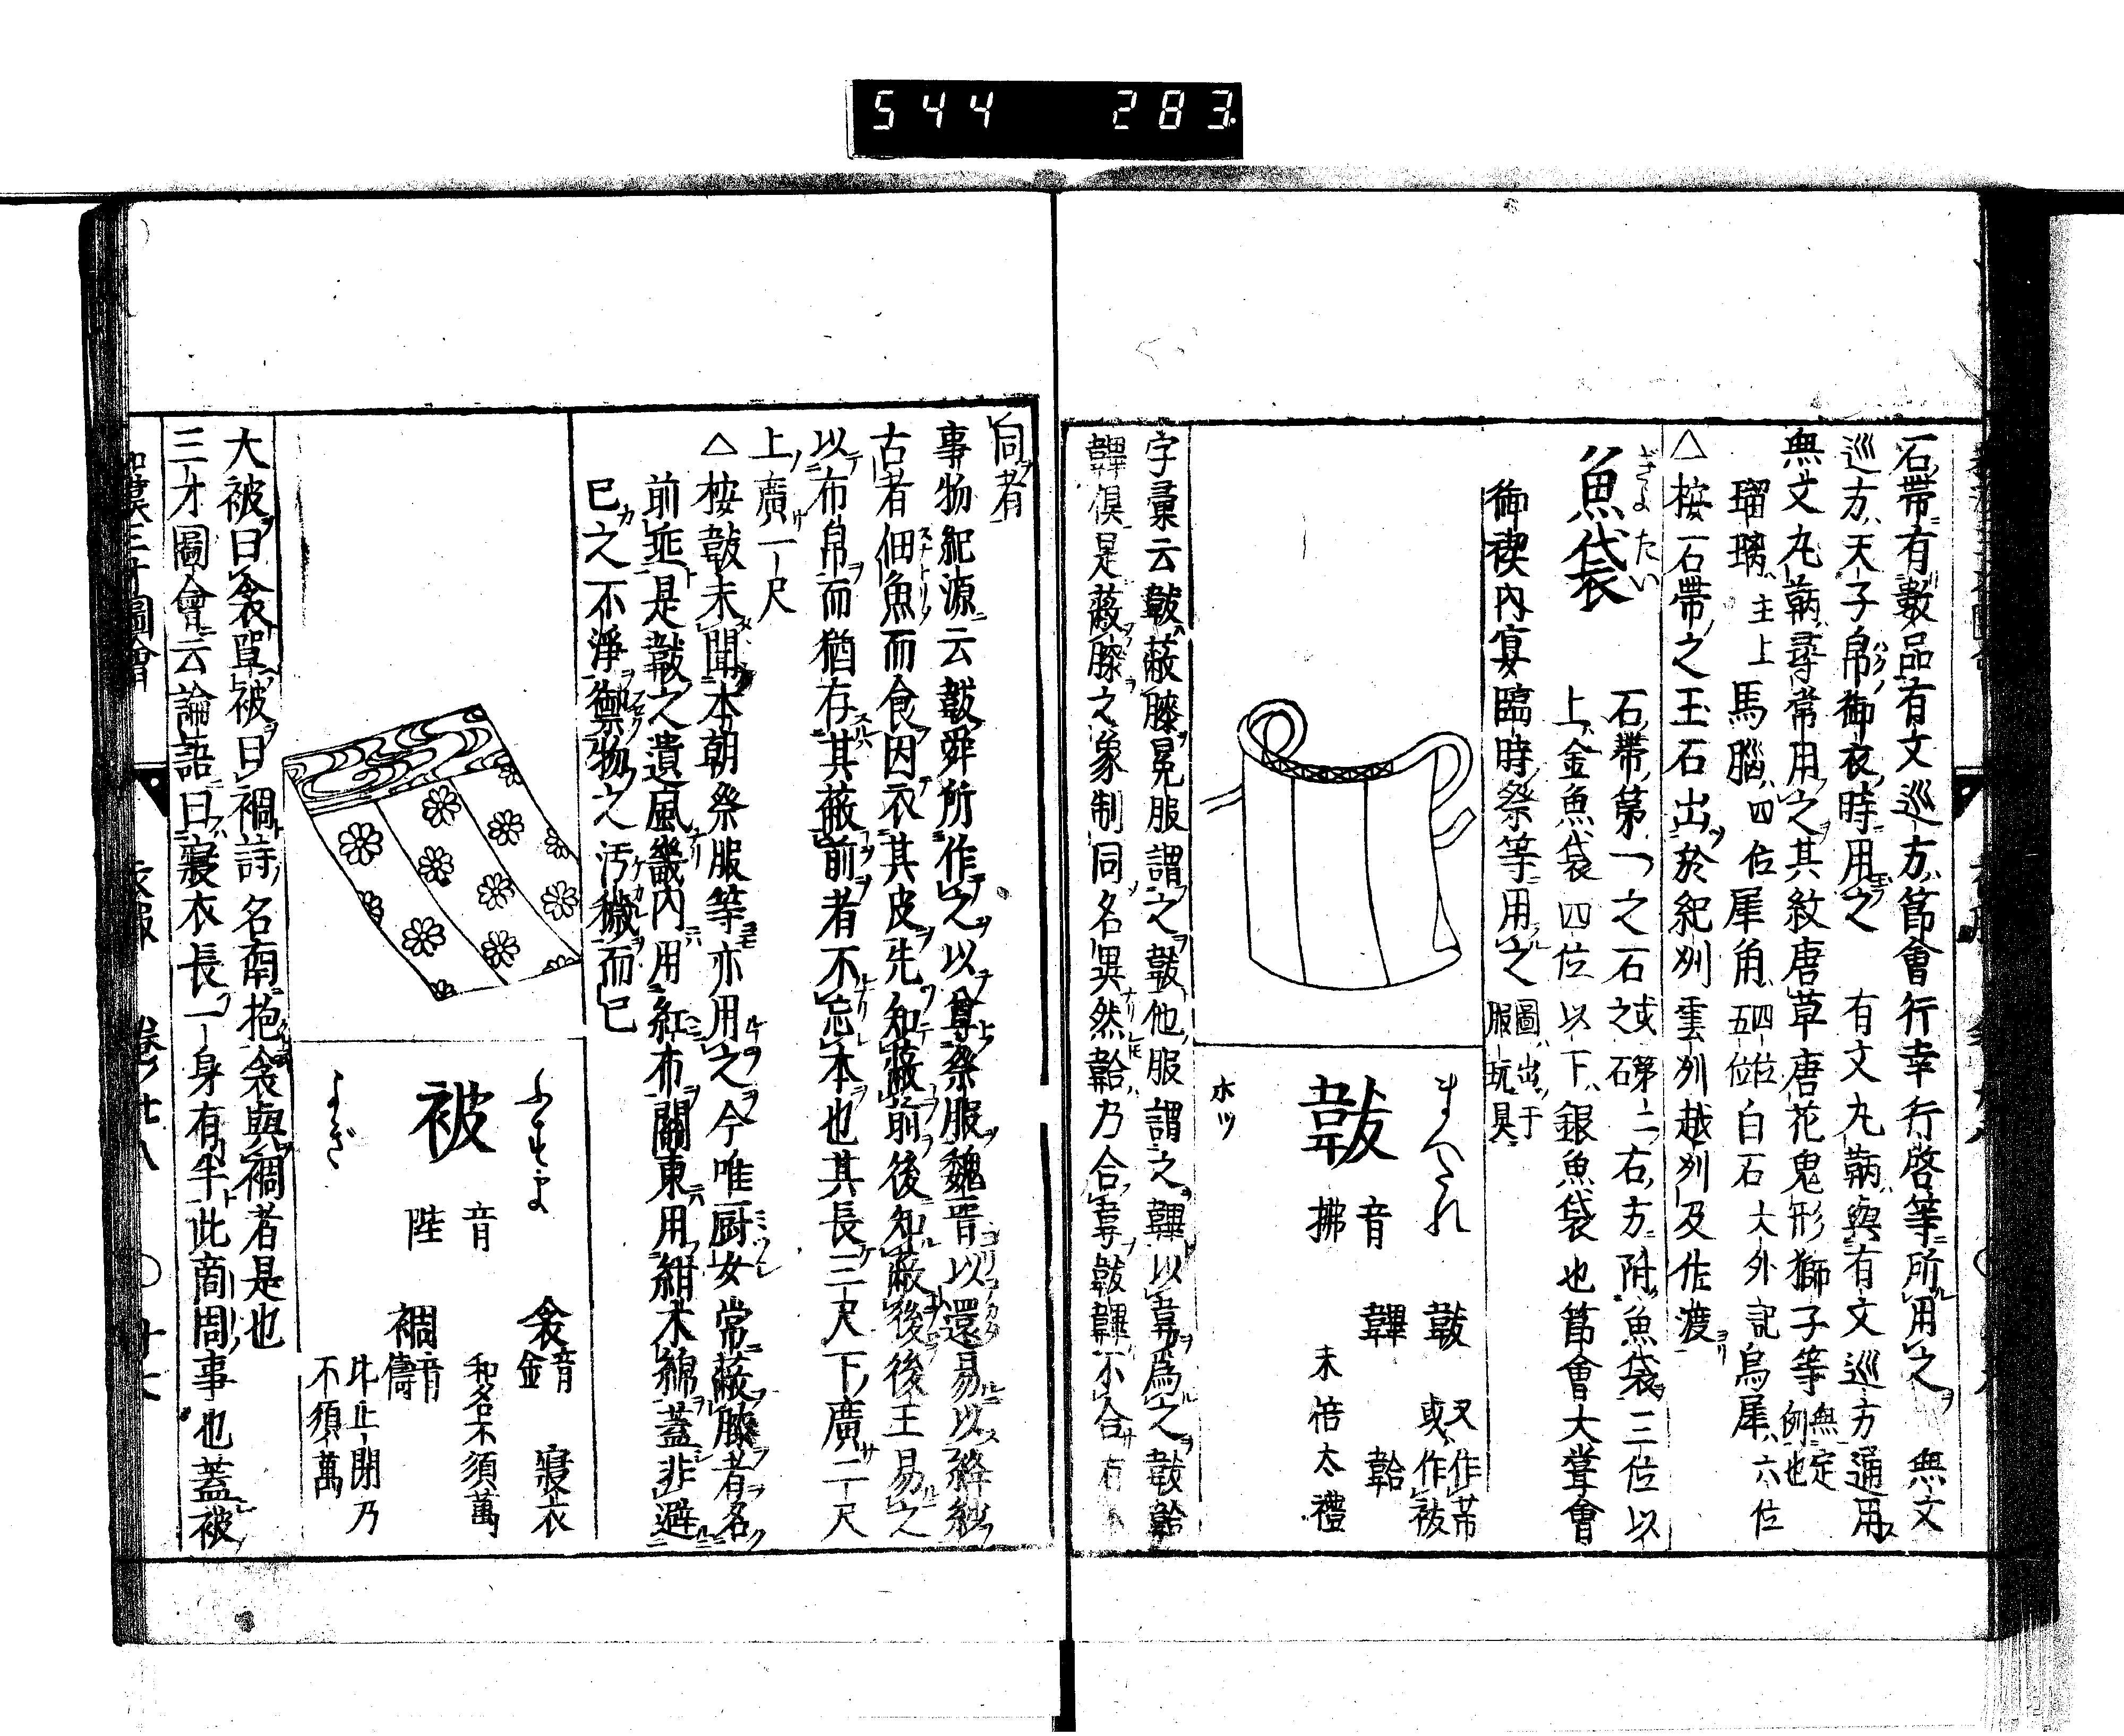 544 283
石帶有數品有文巡方節會行幸行啓等所用之 無文
巡方天子帛御衣時用之 有文丸鞆與有文巡方通用
無文丸鞆尋常用之其紋唐草唐花鬼形獅子等無定例也
瑠璃主上馬腦四位犀角四位五位白石大外記烏犀六位
△按石帶之玉石出於紀州雲州越州及佐渡
ぎよたい
魚袋
石帶第一之石或第二之石右方附魚袋三位以
上金魚袋四位以下銀魚袋也節會大嘗會
御禊内宴臨時祭等用之圖出于服玩具
まへたれ
韍 音拂
韍 又作芾或作被
韠 韐
未倍太禮
ホツ
字彙云韍蔽膝冕服謂之韍他服謂之韠以韋爲之韍韐
韠俱是蔽膝之象制同名異然韐乃合韋韍韠不合有
同者
事物紀源云韍舜所作之以尊祭服魏晉以還易以絳紗
古者佃魚而食因衣其皮先知蔽前後知蔽後後王易之
以布帛而猶存其蔽前者不忘本也其長三尺下廣二尺
上廣一尺
△按韍未聞本朝祭服等亦用之今唯厨女常蔽膝者名
前垂是韍之遺風畿内用紅布關東用紺木綿蓋非避
已之不淨禦物之汚穢而已
ふすま
被 音陛
よぎ
衾音金 寢衣
和名不須萬
裯音儔
比止閉乃
不須萬
大被曰衾單被曰裯詩名南抱衾與裯者是也
三才圖會云論語曰寢衣長一身有半此商周事也蓋被
和漢三才圖會 衣服 卷ノ廿八 〇